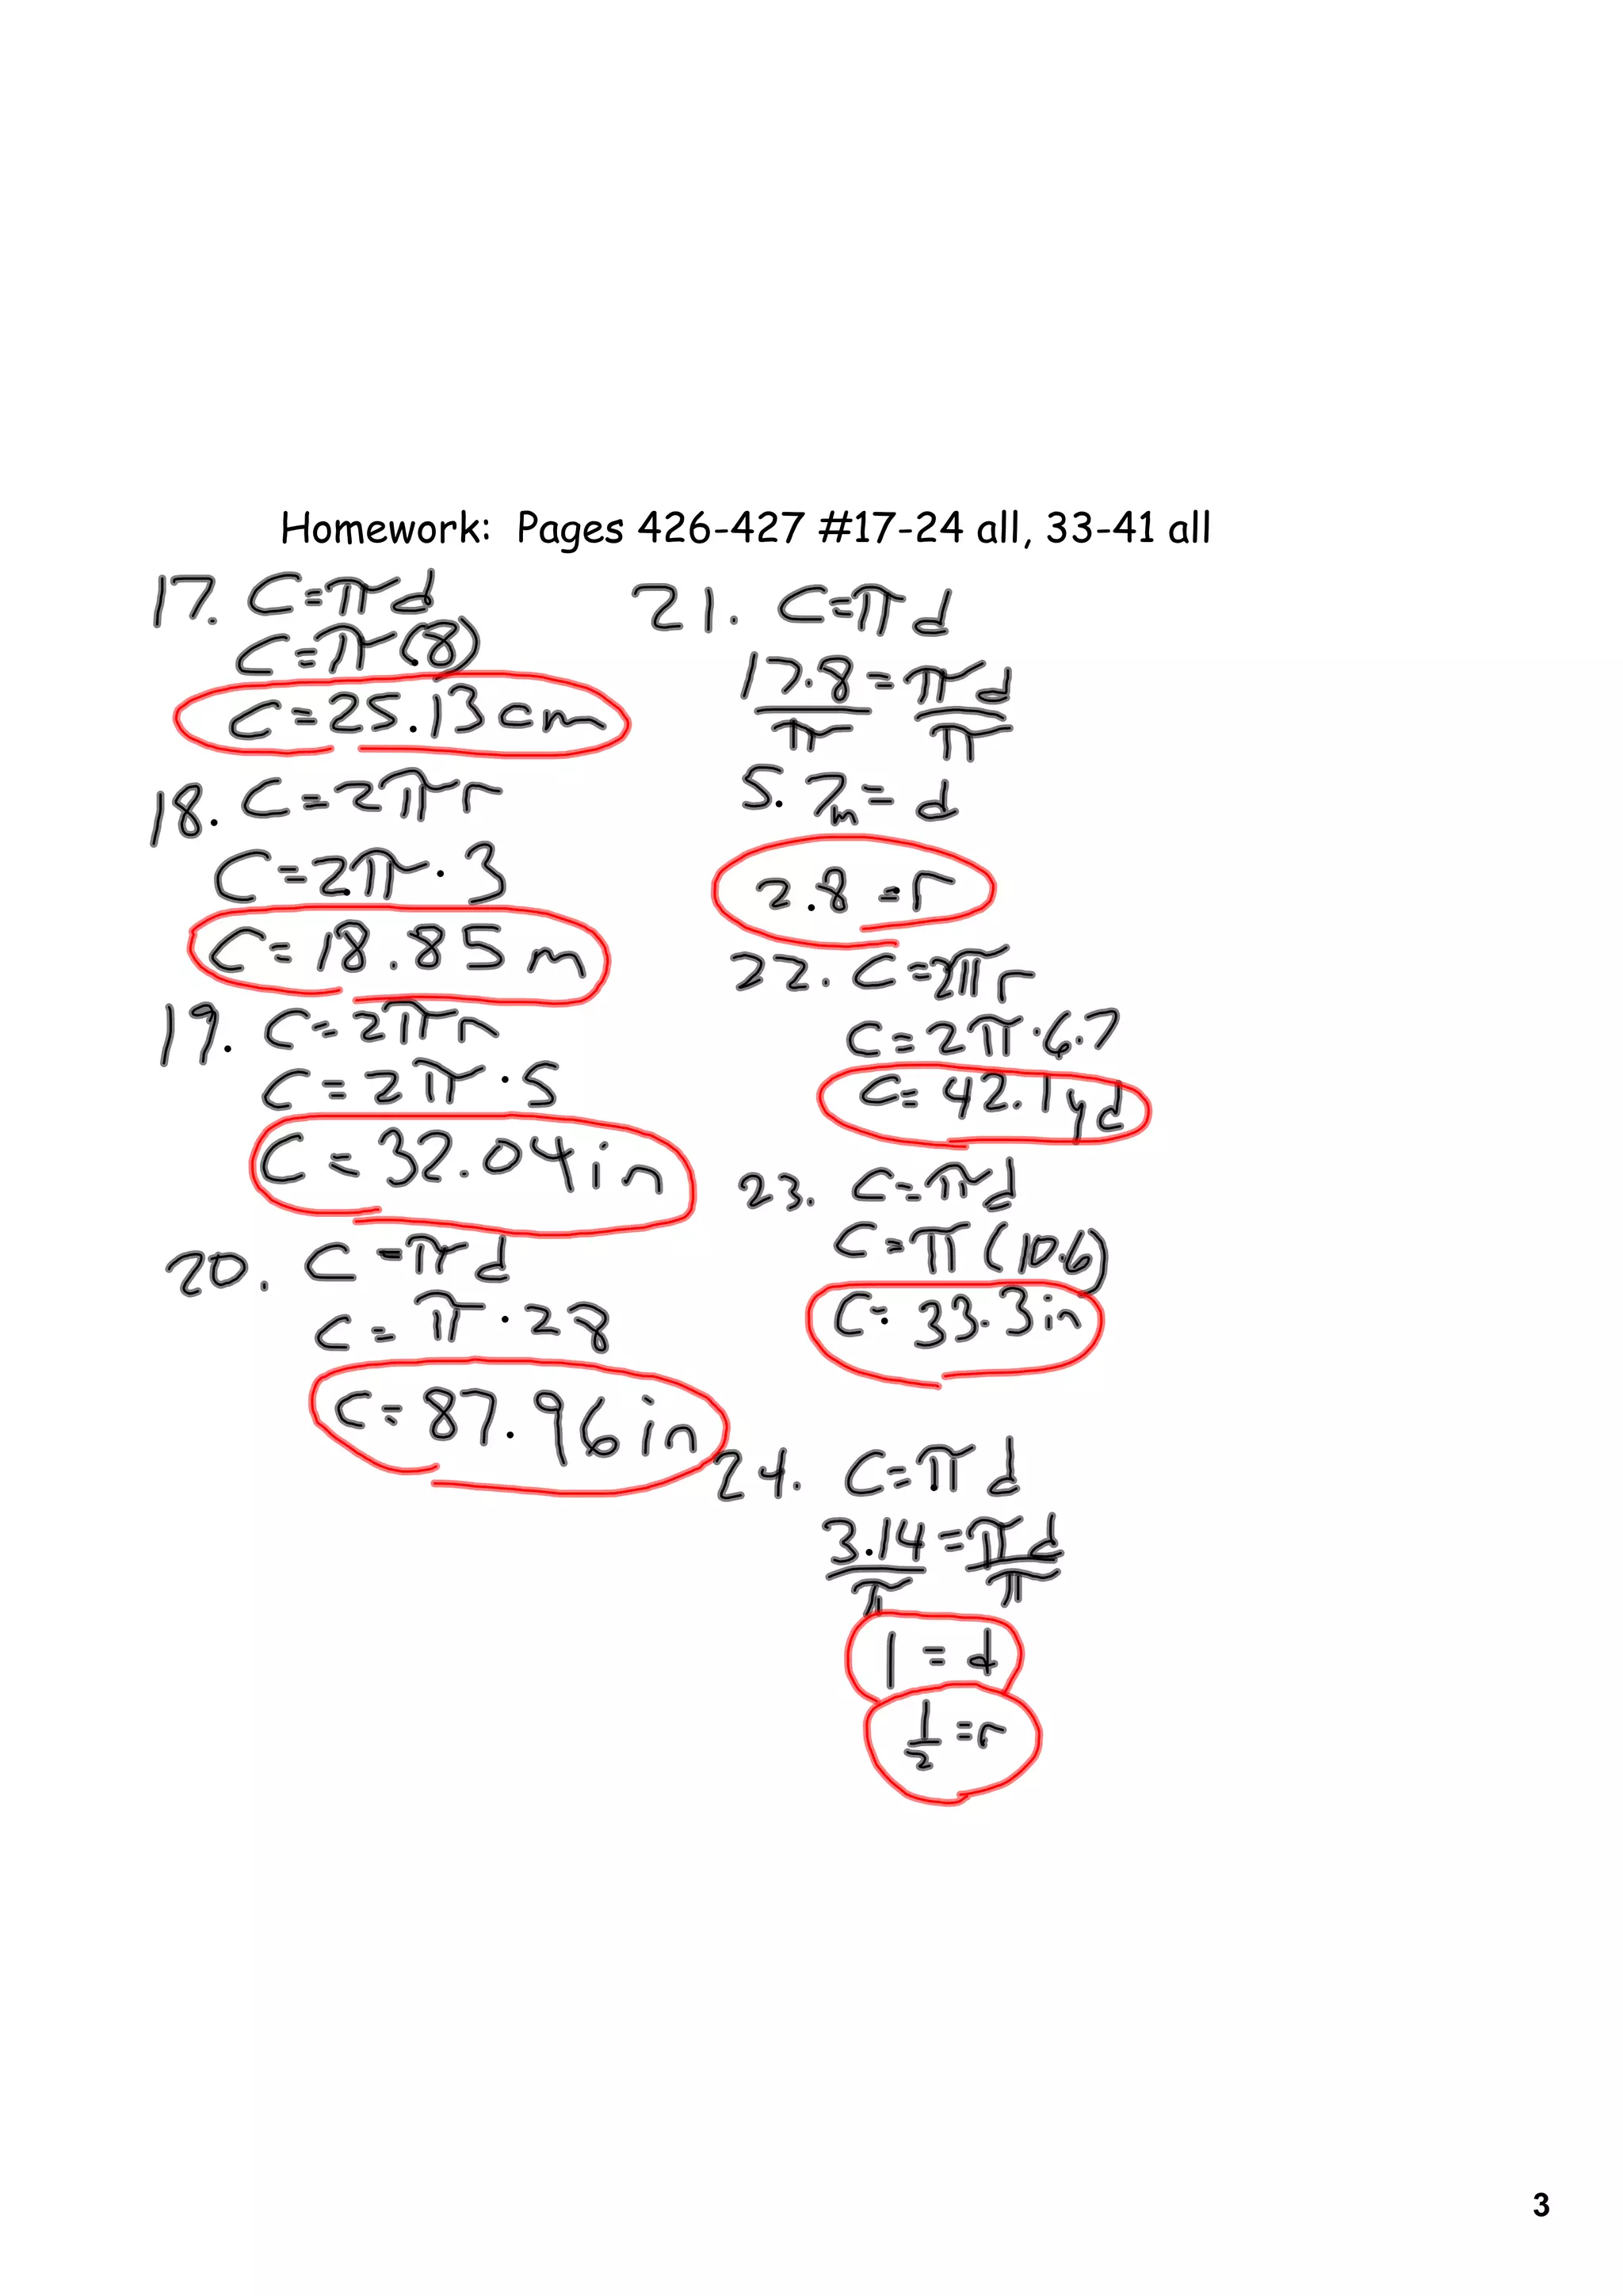 Homework: Pages 426-427 #17-24 all, 33-41 all
17. C=πd
C=π(8)
C=25.13cm
18. C=2πr
C=2π·3
C=18.85m
19. C=2πr
C=2π·5
C=32.04in
20. C=πd
C=π·28
C=87.96in
21. C=πd
17.8=πd
π π
5.7m=d
2.8=r
22. C=2πr
C=2π·6.7
C=42.1yd
23. C=πd
C=π(10.6)
C=33.3in
24. C=πd
3.14=πd
π π
1=d
1/2=r
3